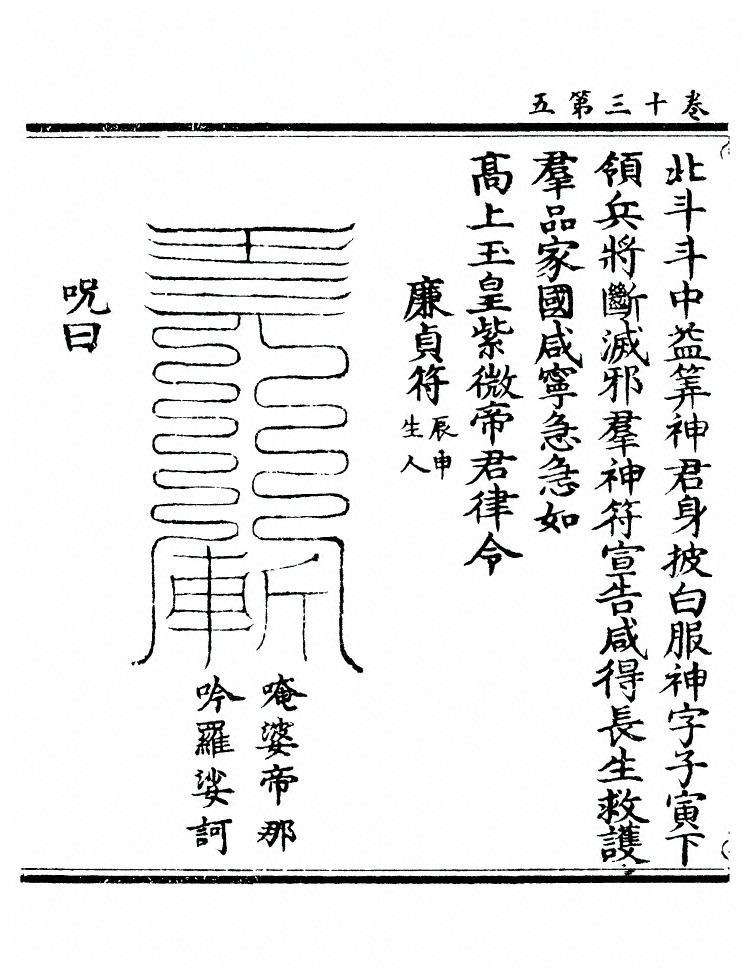 卷十三第五
北斗斗中益筭神君身披白服神字子寅下
領兵將斷滅邪羣神符宣告咸得長生救護
羣品家國咸寧急急如
高上玉皇紫微帝君律令
廉貞符
辰申
生人
斬
唵婆帝那
吟羅娑訶
呪曰